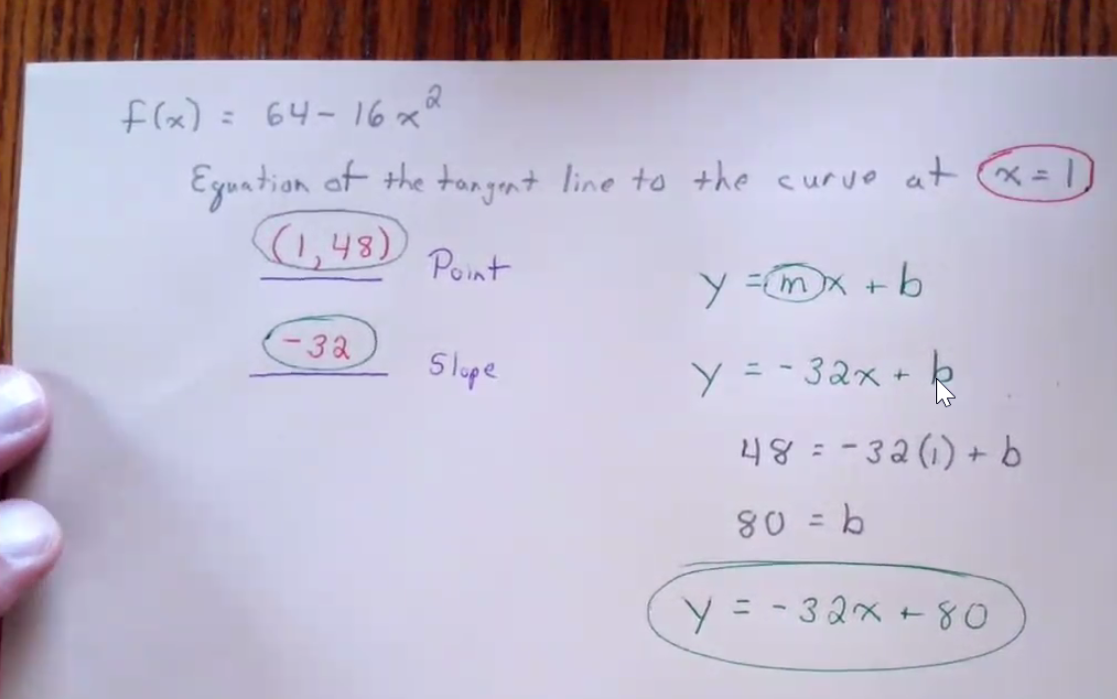 f(x) = 64 - 16x²
Equation of the tangent line to the curve at x = 1
(1, 48) Point
-32 Slope
y = mx + b
y = -32x + b
48 = -32(1) + b
80 = b
y = -32x + 80